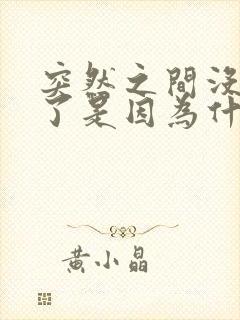 突然之間沒
了是因為什
黃小晶